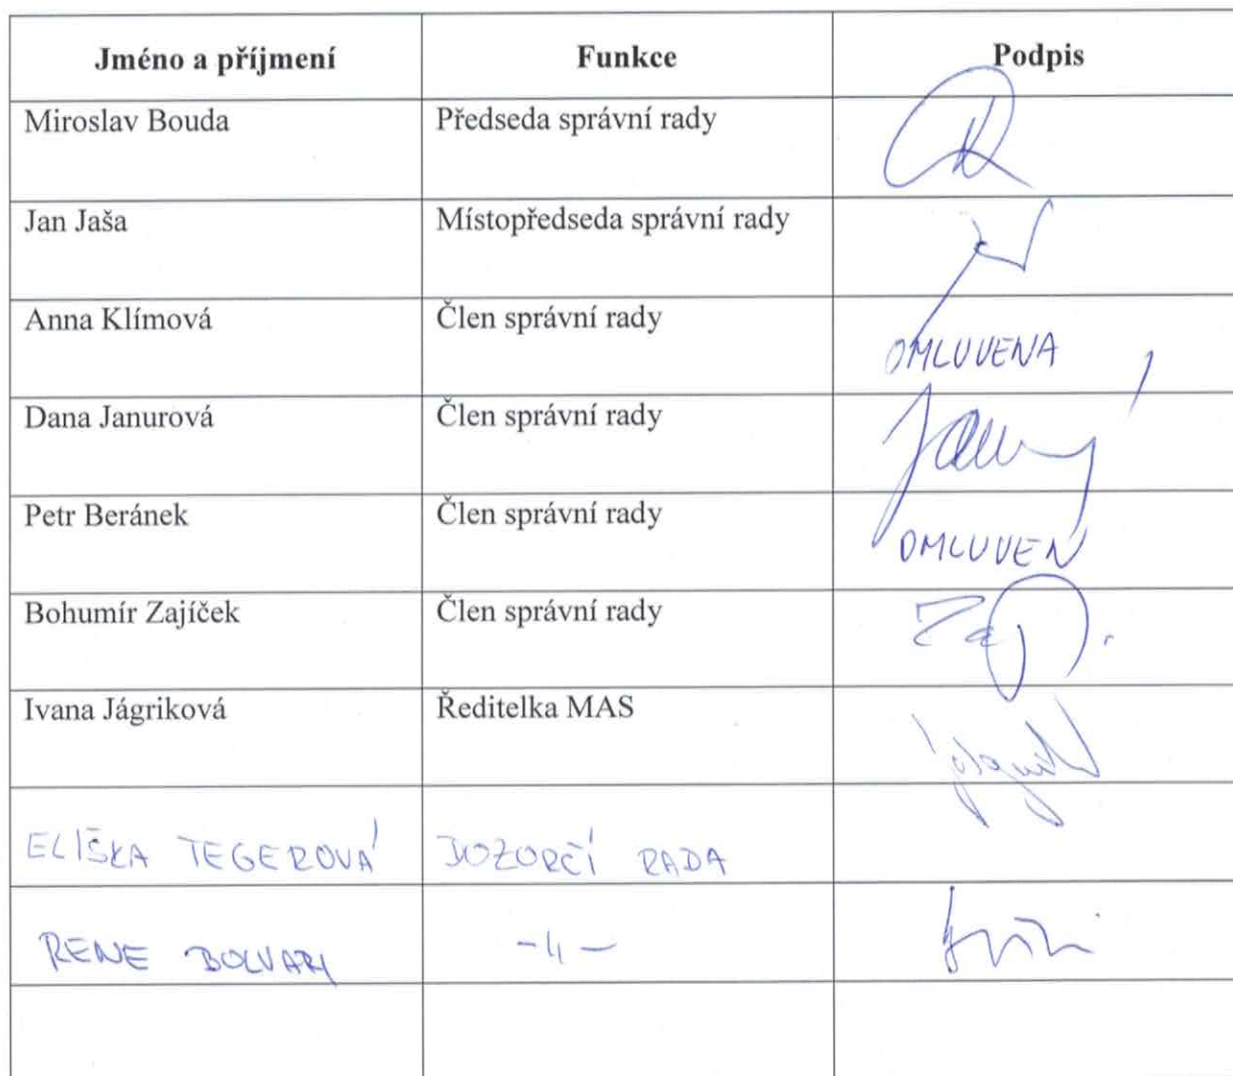 Jméno a příjmení Funkce Podpis
Miroslav Bouda Předseda správní rady
Jan Jaša Místopředseda správní rady
Anna Klímová Člen správní rady OMLUVENA
Dana Janurová Člen správní rady
Petr Beránek Člen správní rady OMLUVEN
Bohumír Zajíček Člen správní rady
Ivana Jágriková Ředitelka MAS
ELIŠKA TEGEROVÁ DOZORČÍ RADA
RENE BOLVARI -11-